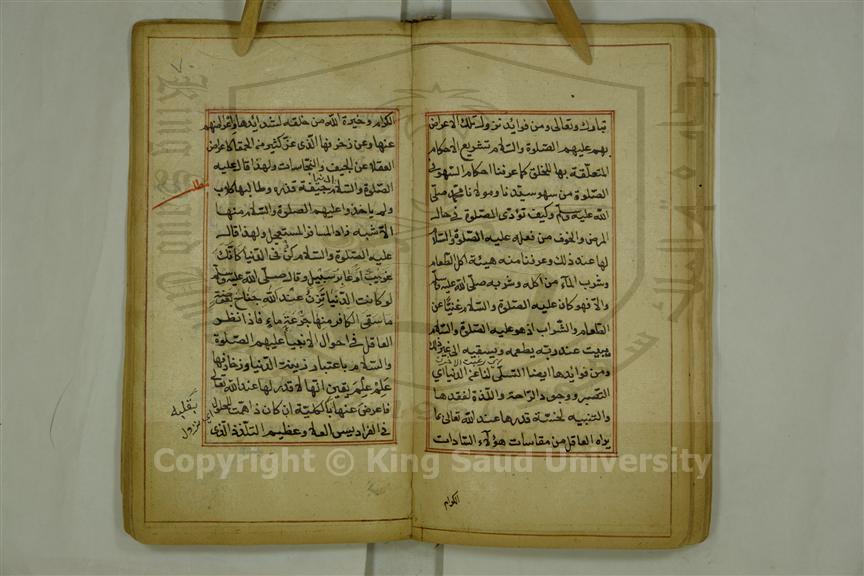 تبارك وتعالى ومن فوائد نزول تلك الاعراض
بهم عليهم الصلوة والسلام تشريع الاحكام
المتعلقة بها للخلق كما عرفنا احكام السهو في
الصلوة من سهو سيدنا ومولانا محمد صلى
الله عليه وسلم وكيف تؤدى الصلوة في حالة
المرض والخوف من فعله عليه الصلوة والسلام
لها عند ذلك وعرفنا منه هيئة اكل الطعام
وشرب الماء من اكله وشربه صلى الله عليه وسلم
والا فهو كان عليه الصلوة والسلام غنيا عن
الطعام والشراب اذ هو عليه الصلوة والسلام
يبيت عند ربه يطعمه ويسقيه الى غير ذلك
ومن فوائدها ايضا التسلى عن الدنيا اي
التصبر ووجود الراحة واللذة لفقدها
والتنبيه لخسة قدرها عند الله تعالى بما
يراه العاقل من مقاسات هؤلاء السادات
الكرام
٧
الكرام وخيرة الله من خلقه لشدائدها واعراضهم
عنها وعن زخرفها الذى غر كثير من الحمقا كاعراض
العقلاء عن الجيف والنجاسات ولهذا قال عليه
الصلوة والسلام الدنيا جيفة قذرة وطالبها كلاب
ولم ياخذوا عليهم الصلوة والسلام منها
الا شبه زاد المسافر المستعجل ولهذا قال
عليه الصلوة والسلام كن في الدنيا كانك
غريب او عابر سبيل وقال صلى الله عليه وسلم
لو كانت الدنيا تزن عند الله جناح بعوضة
ما سقى الكافر منها جرعة ماء فاذا نظر
العاقل في احوال الانبياء عليهم الصلوة
والسلام باعتبار زينة الدنيا وزخارفها
علم علم يقين انها لا قدر لها عند الله تعالى
فاعرض عنها بالكلية ان كان ذا همة
في الفراديس العلا وعظيم التلذذ الذى
بقلبه
Copyright © King Saud University